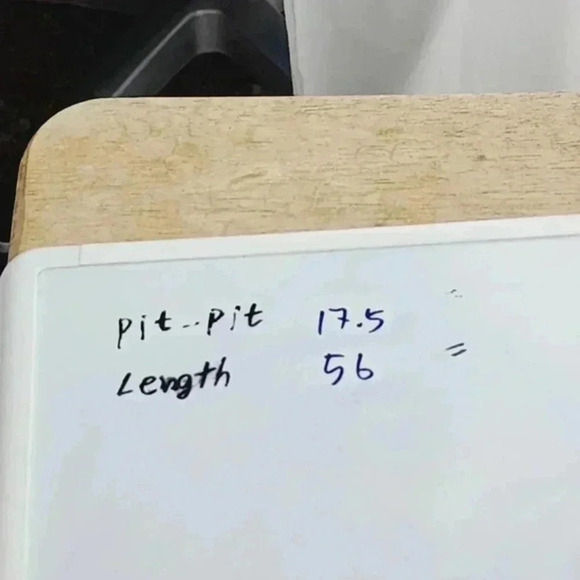 pit--pit 17.5
Length 56 =